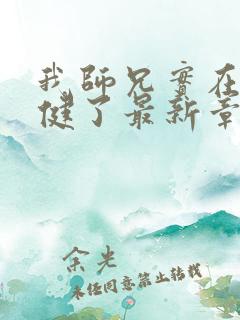 我師兄實在
健了最新章
余光
未经同意禁止转载